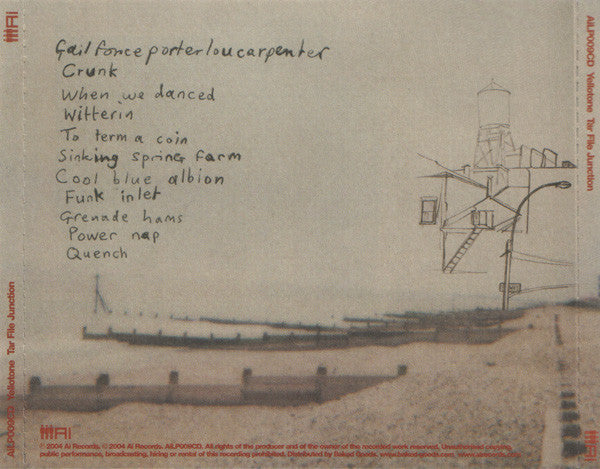 Gail force porter lou carpenter
Crunk
When we danced
Witterin
To term a coin
Sinking spring farm
Cool blue albion
Funk inlet
Grenade hams
Power nap
Quench
AiLP009CD Yellotone Tar File Junction
AiLP009CD Yellotone Tar File Junction
Ai
Ai
℗ 2004 Ai Records. © 2004 Ai Records. AiLP009CD. All rights of the producer and of the owner of the recorded work reserved. Unauthorised copying,
public performance, broadcasting, hiring or rental of this recording prohibited. Distributed by Baked Goods. www.bakedgoods.com, www.airecords.com